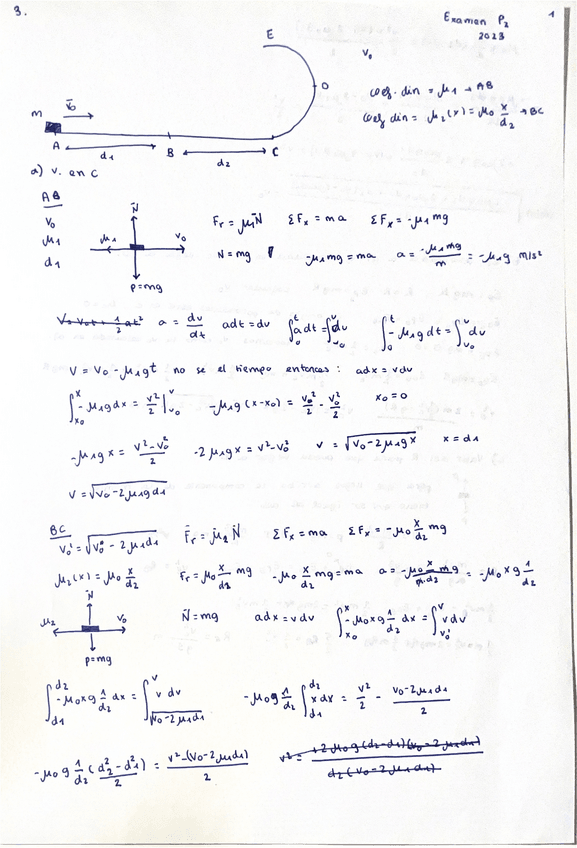 3.
Examen P2
2023
1
E
V₀
D
m
v̄₀
A
d₁
B
d₂
C
coef. din = μ₁ → AB
coef din = μ₂(x) = μ₀ x/d₂ → BC
a) v. en C
AB
V₀
μ₁
d₁
N̄
μ₁
v₀
p=mg
Fr = μ₁N̄ ΣFx = ma ΣFx = -μ₁mg
N = mg -μ₁mg = ma a = -μ₁mg/m = -μ₁g m/s²
a = dv/dt adt = dv ∫₀ᵗ adt = ∫_{v₀}^{v} dv ∫₀ᵗ -μ₁g dt = ∫_{v₀}^{v} dv
V = V₀ - μ₁gt no se el tiempo entonces: adx = vdv
∫_{x₀}^{x} -μ₁g dx = v²/2 |_{v₀}^{v} -μ₁g (x-x₀) = v₀²/2 - v₀²/2 x₀=0
-μ₁g x = (v²-v₀²)/2 -2μ₁gx = v²-v₀² v = √(v₀-2μ₁gx) x=d₁
V = √(v₀-2μ₁gd₁)
BC
V₀' = √(v₀² - 2μ₁d₁) F̄r = μ̄₂ N̄ ΣFx = ma ΣFx = -μ₀ x/d₂ mg
μ₂(x) = μ₀ x/d₂ Fr = μ₀ x/d₂ mg -μ₀ x/d₂ mg = ma a = -μ₀ x mg/(m·d₂) = -μ₀xg 1/d₂
N̄
μ₂
v₀
p=mg
N̄ = mg adx = vdv ∫_{x₀}^{x} -μ₀xg 1/d₂ dx = ∫_{v₀'}^{v} v dv
∫_{d₁}^{d₂} -μ₀xg 1/d₂ dx = ∫_{√(v₀-2μ₁d₁)}^{v} v dv -μ₀g 1/d₂ ∫_{d₁}^{d₂} x dx = v²/2 - (v₀-2μ₁d₁)/2
-μ₀g 1/d₂ (d₂²-d₁²)/2 = (v²-(v₀-2μ₁d₁))/2